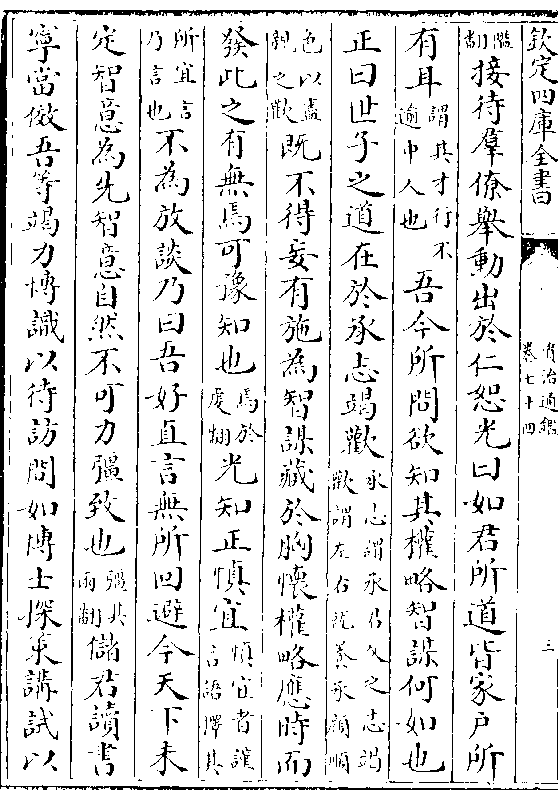 欽定四庫全書
資治通鑑
卷七十四
三
濫翻接待羣僚舉動出於仁恕光曰如君所道皆家戶所
有耳謂其才行不逾中人也吾今所問欲知其權略智謀何如也
正曰世子之道在於承志竭歡承志謂承君父之志竭歡謂左右就養承顔順
色以盡親之歡既不得妄有施為智謀藏於胸懷權略應時而
發此之有無焉可豫知也焉於虔翻光知正慎宜慎宜者謹言語擇其
所宜言乃言也不為放談乃曰吾好直言無所回避今天下未
定智意為先智意自然不可力彊致也彊其兩翻儲君讀書
寧當倣吾等竭力博識以待訪問如博士探策講試以